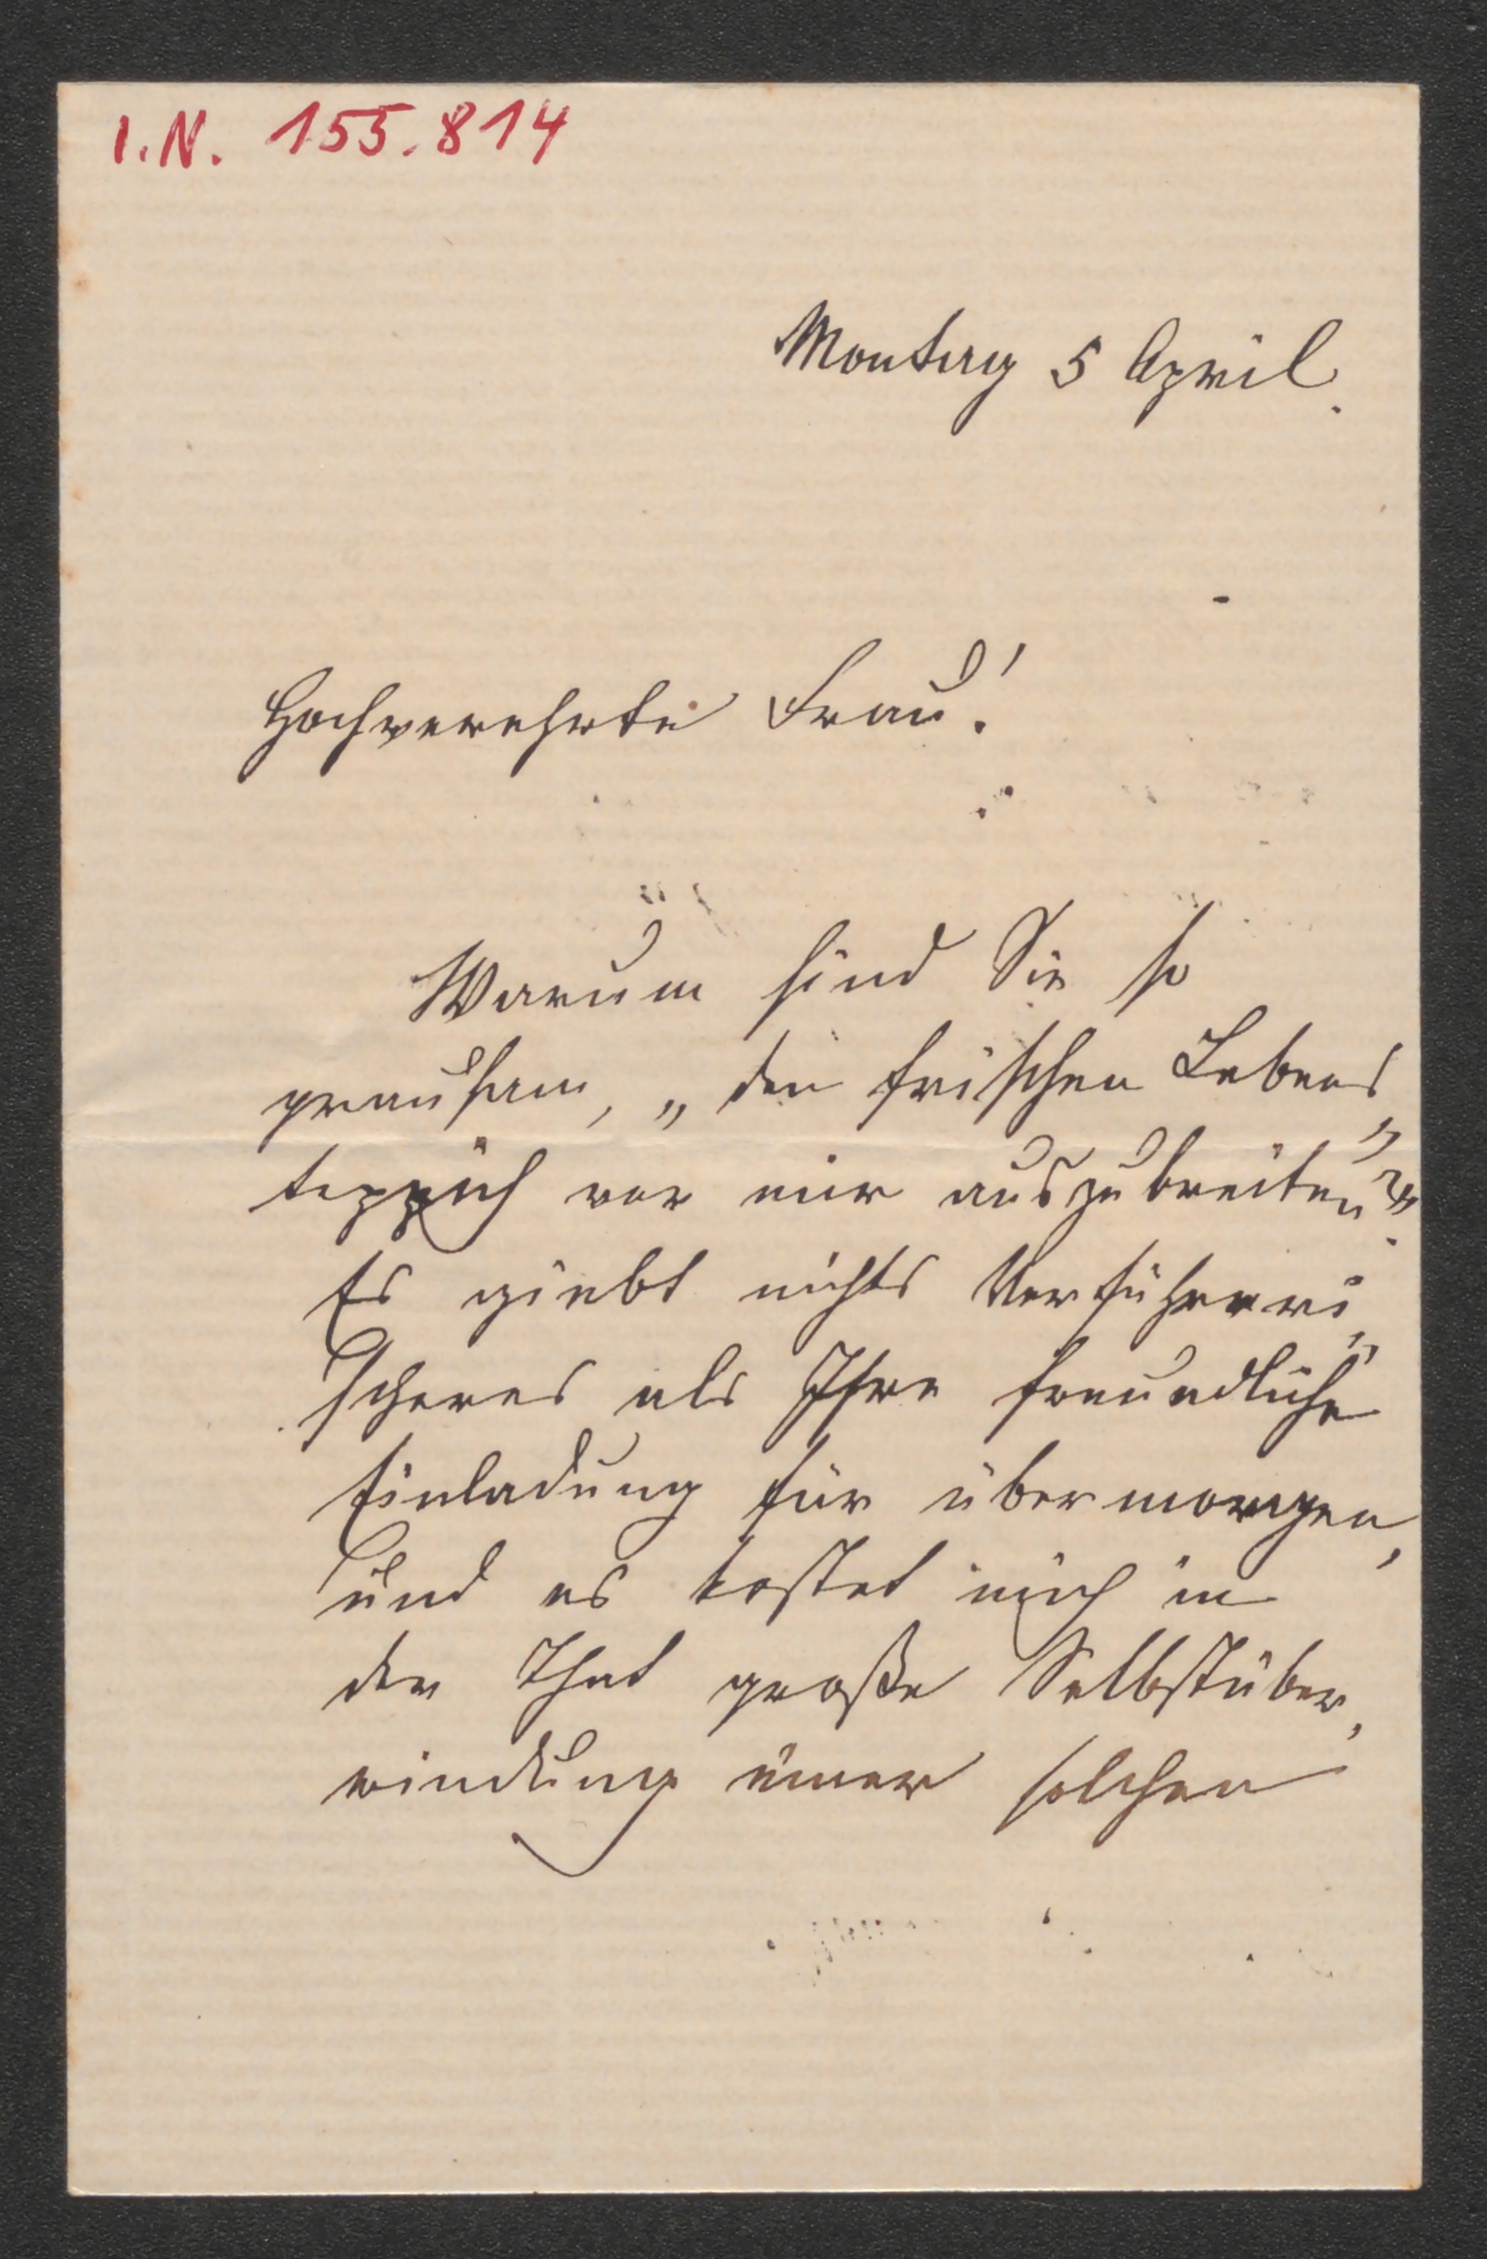 I.N. 155.814
Montag 5 April.
Hochverehrte Frau!
Warum sind Sie so
grausam, „den frischen Lebens„
teppich vor mir auszubreiten?"
Es giebt nichts Verführeri„
scheres als Ihre freundliche
Einladung für übermorgen,
und es kostet mich in
der That große Selbstüber„
windung einer solchen